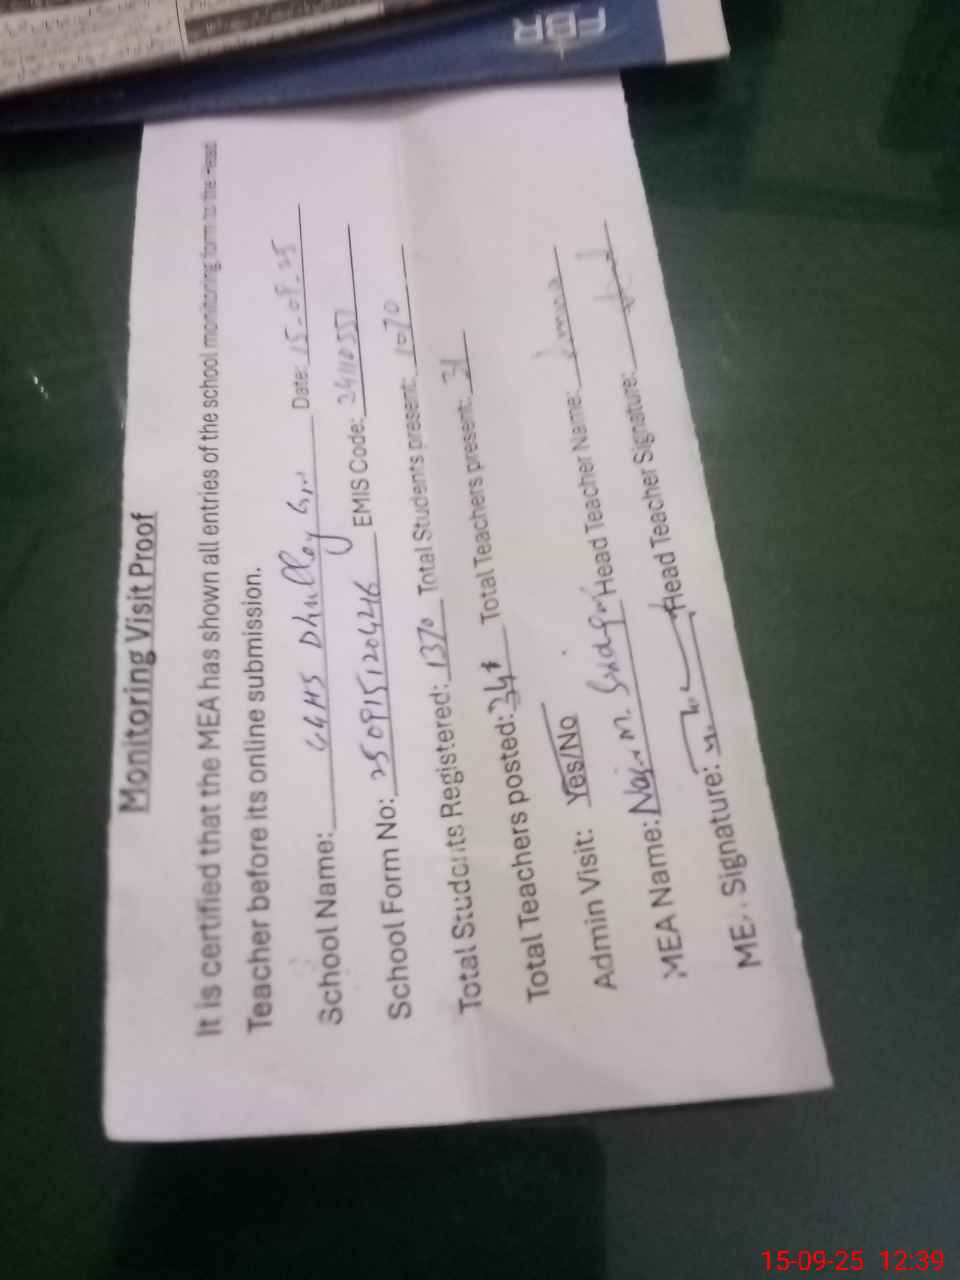 Monitoring Visit Proof
It is certified that the MEA has shown all entries of the school monitoring form to the Head
Teacher before its online submission.
School Name: GGHS Dhulley Date: 15-09-25
School Form No: 250915120446 EMIS Code: 34110557
Total Students Registered: 1370 Total Students present: 1070
Total Teachers posted: 34 Total Teachers present: 31
Admin Visit: Yes/No
MEA Name: Head Teacher Name:
MEA Signature: Head Teacher Signature:
15-09-25 12:39